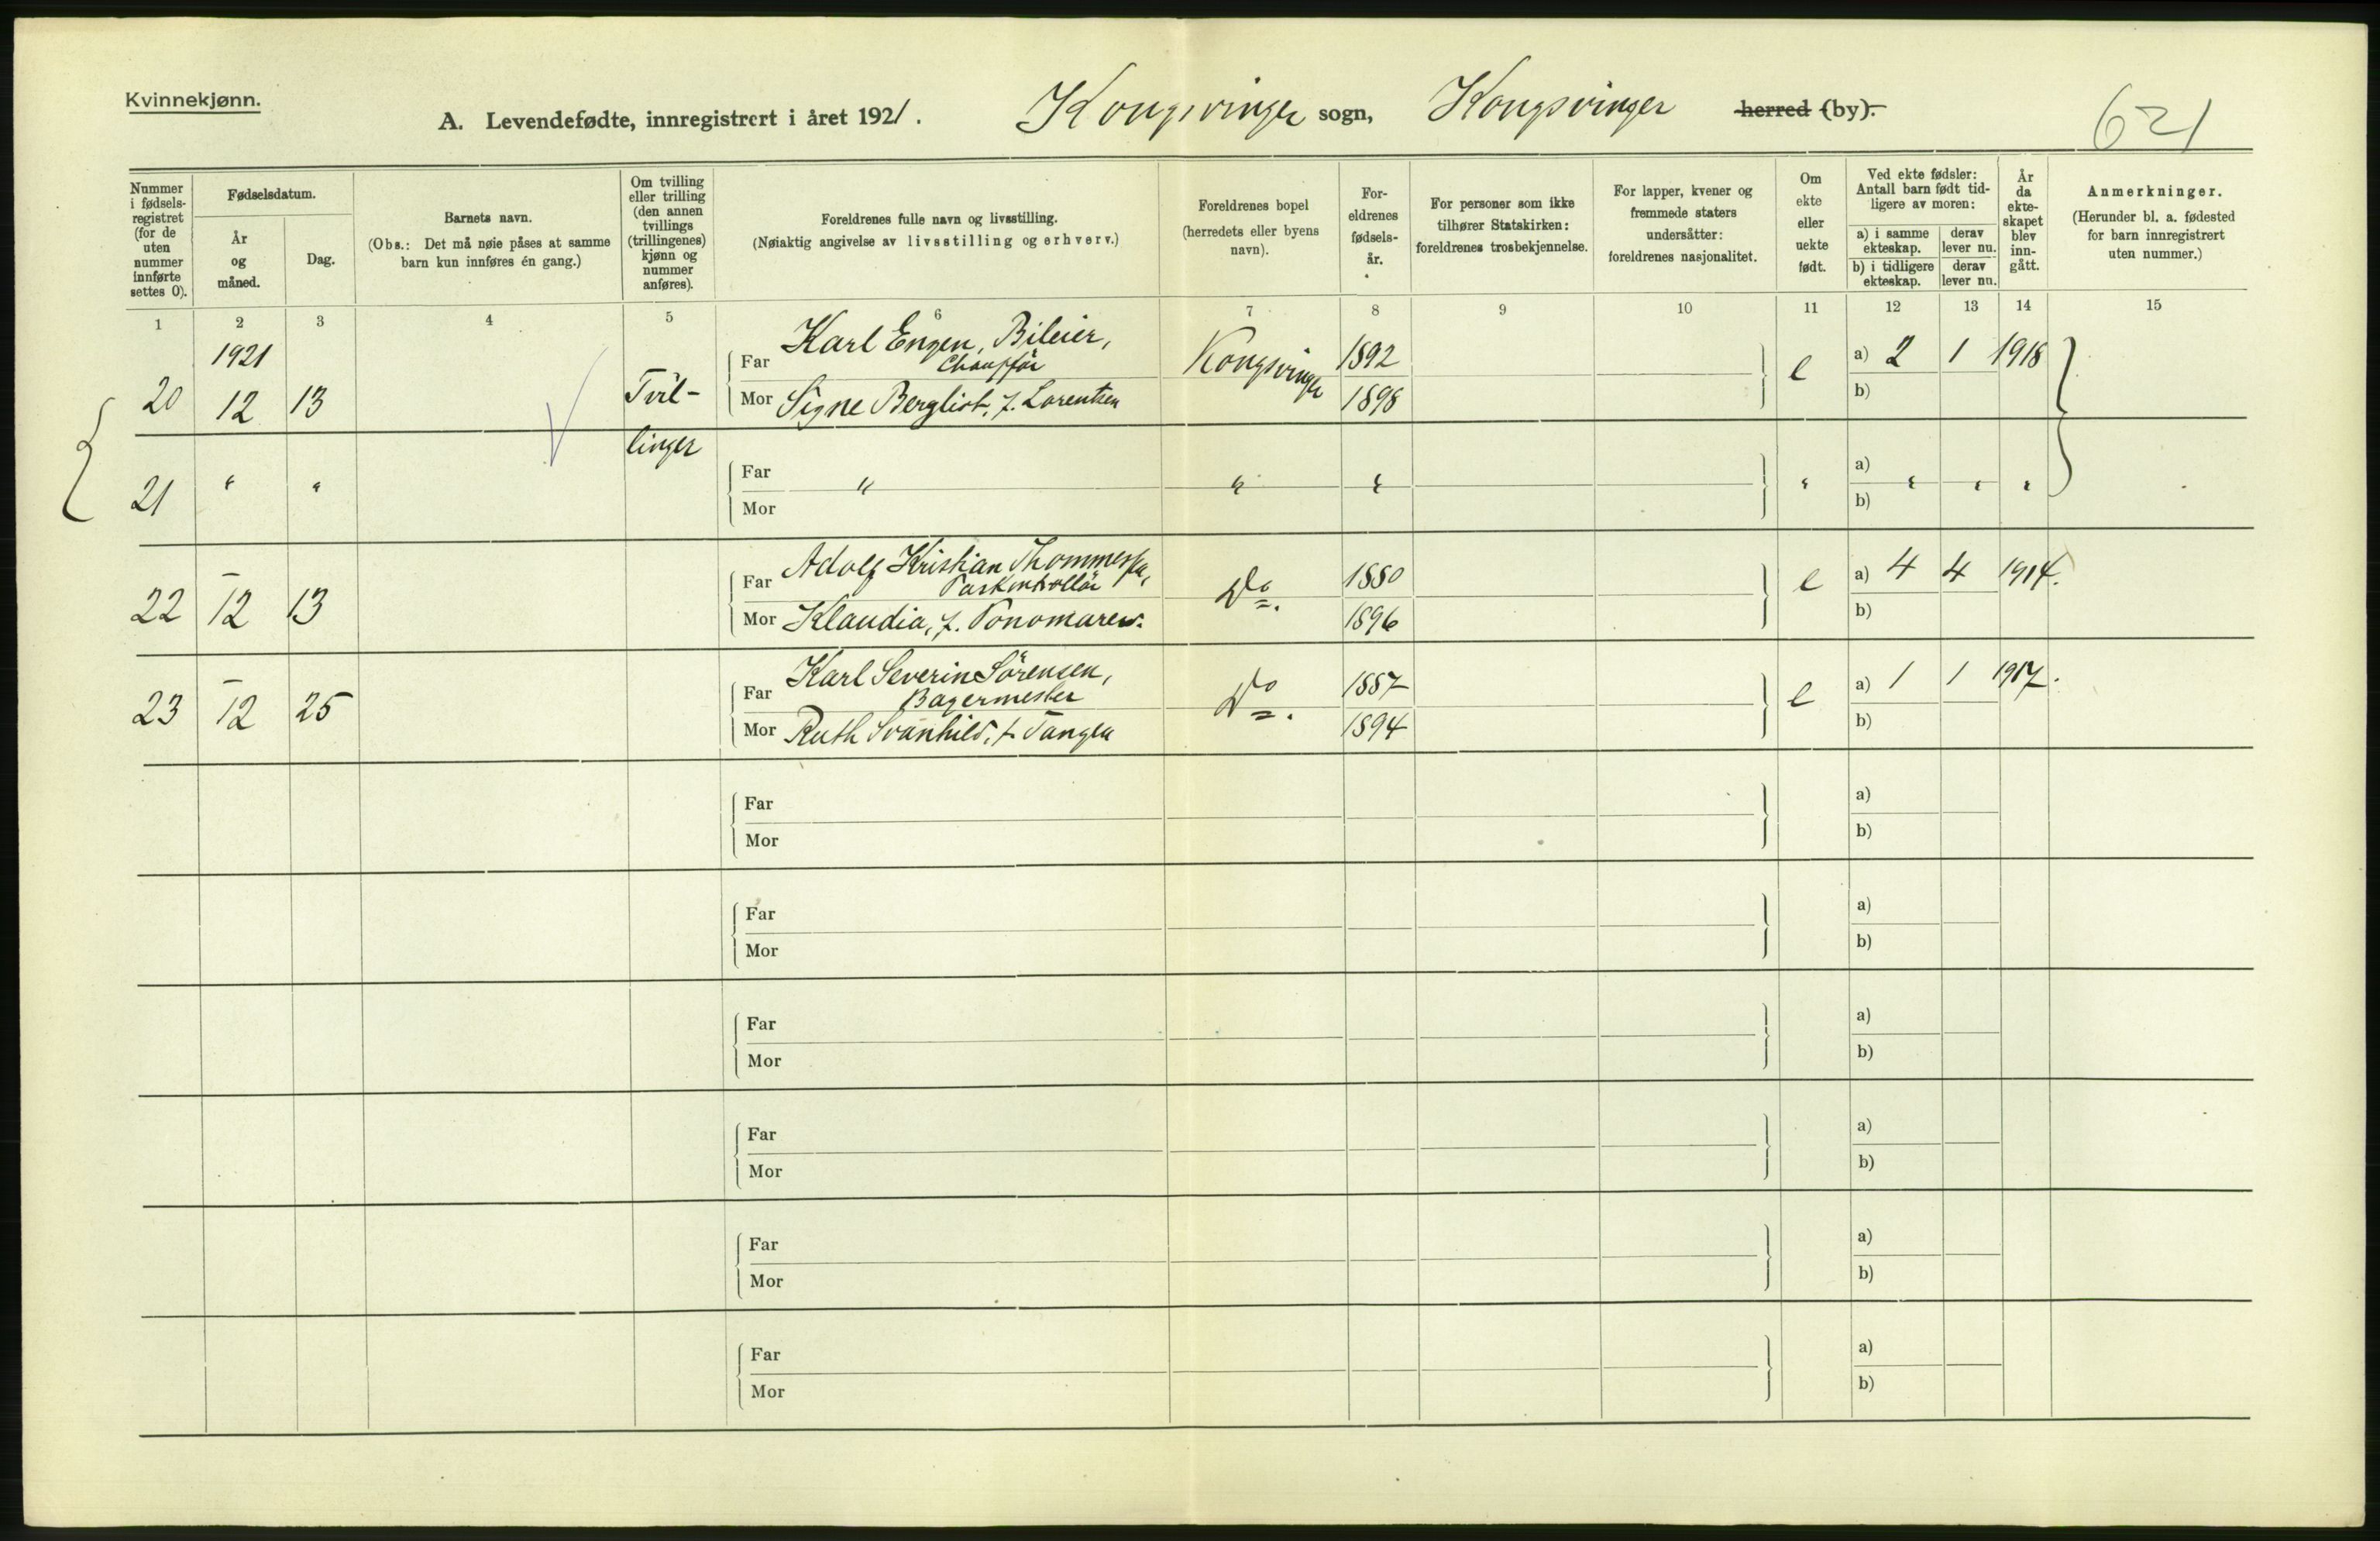 Kvinnekjønn.
A. Levendefødte, innregistrert i året 1921. Kongsvinger sogn, Kongsvinger herred (by).
621
Nummer i fødsels-registret (for de uten nummer innførte settes 0).
Fødselsdatum.
År og måned.
Dag.
Barnets navn.
(Obs.: Det må nøie påses at samme barn kun innføres én gang.)
Om tvilling eller trilling (den annen tvillings (trillingenes) kjønn og nummer anføres).
Foreldrenes fulle navn og livsstilling.
(Nøiaktig angivelse av livsstilling og erhverv.)
Foreldrenes bopel (herredets eller byens navn).
For-eldrenes fødsels-år.
For personer som ikke tilhører Statskirken: foreldrenes trosbekjennelse.
For lapper, kvener og fremmede staters undersåtter: foreldrenes nasjonalitet.
Om ekte eller uekte født.
Ved ekte fødsler: Antall barn født tid-ligere av moren:
a) i samme ekteskap. derav lever nu.
b) i tidligere ekteskap. derav lever nu.
År da ekte-skapet blev inn-gått.
Anmerkninger.
(Herunder bl. a. fødested for barn innregistrert uten nummer.)
1 2 3 4 5 6 7 8 9 10 11 12 13 14 15
1921
20 12 13 Tvil-
Far Karl Engen, Bileier, Chauffør Kongsvinger 1892 e a) 2 1 1918
Mor Signe Bergliot, f. Lorentsen 1898 b)
linger
21 " " Far " " " " a) " " "
Mor b)
22 12 13 Far Adolf Kristian Thommessen, Paskontrollør Do. 1880 e a) 4 4 1914.
Mor Klaudia, f. Ponomarew. 1896 b)
23 12 25 Far Karl Severin Sörensen, Bagermester Do. 1887 e a) 1 1 1917.
Mor Ruth Svanhild, f. Tangen 1894 b)
Far a)
Mor b)
Far a)
Mor b)
Far a)
Mor b)
Far a)
Mor b)
Far a)
Mor b)
Far a)
Mor b)